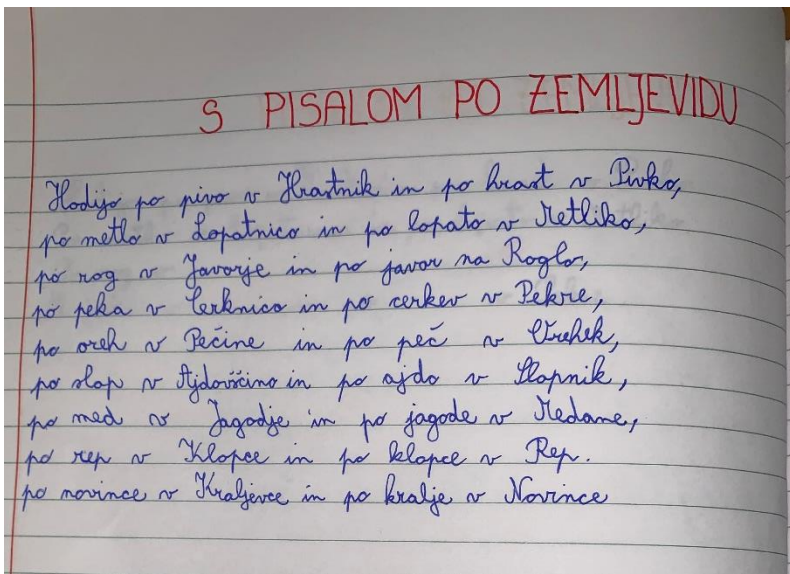 S PISALOM PO ZEMLJEVIDU
Hodijo po pivo v Hrastnik in po hrast v Pivko,
po metlo v Lopatnico in po lopato v Metliko,
po rog v Javorje in po javor na Roglo,
po peka v Cerknico in po cerkev v Pekre,
po oreh v Pečine in po peč v Orehek,
po slap v Ajdovščino in po ajdo v Slapnik,
po med v Jagodje in po jagode v Medane,
po rep v Klopce in po klopce v Rep.
po novince v Kraljevce in po kralje v Novince